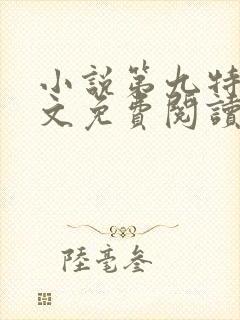 小說第九特
文免費閱讀
陸毫叁